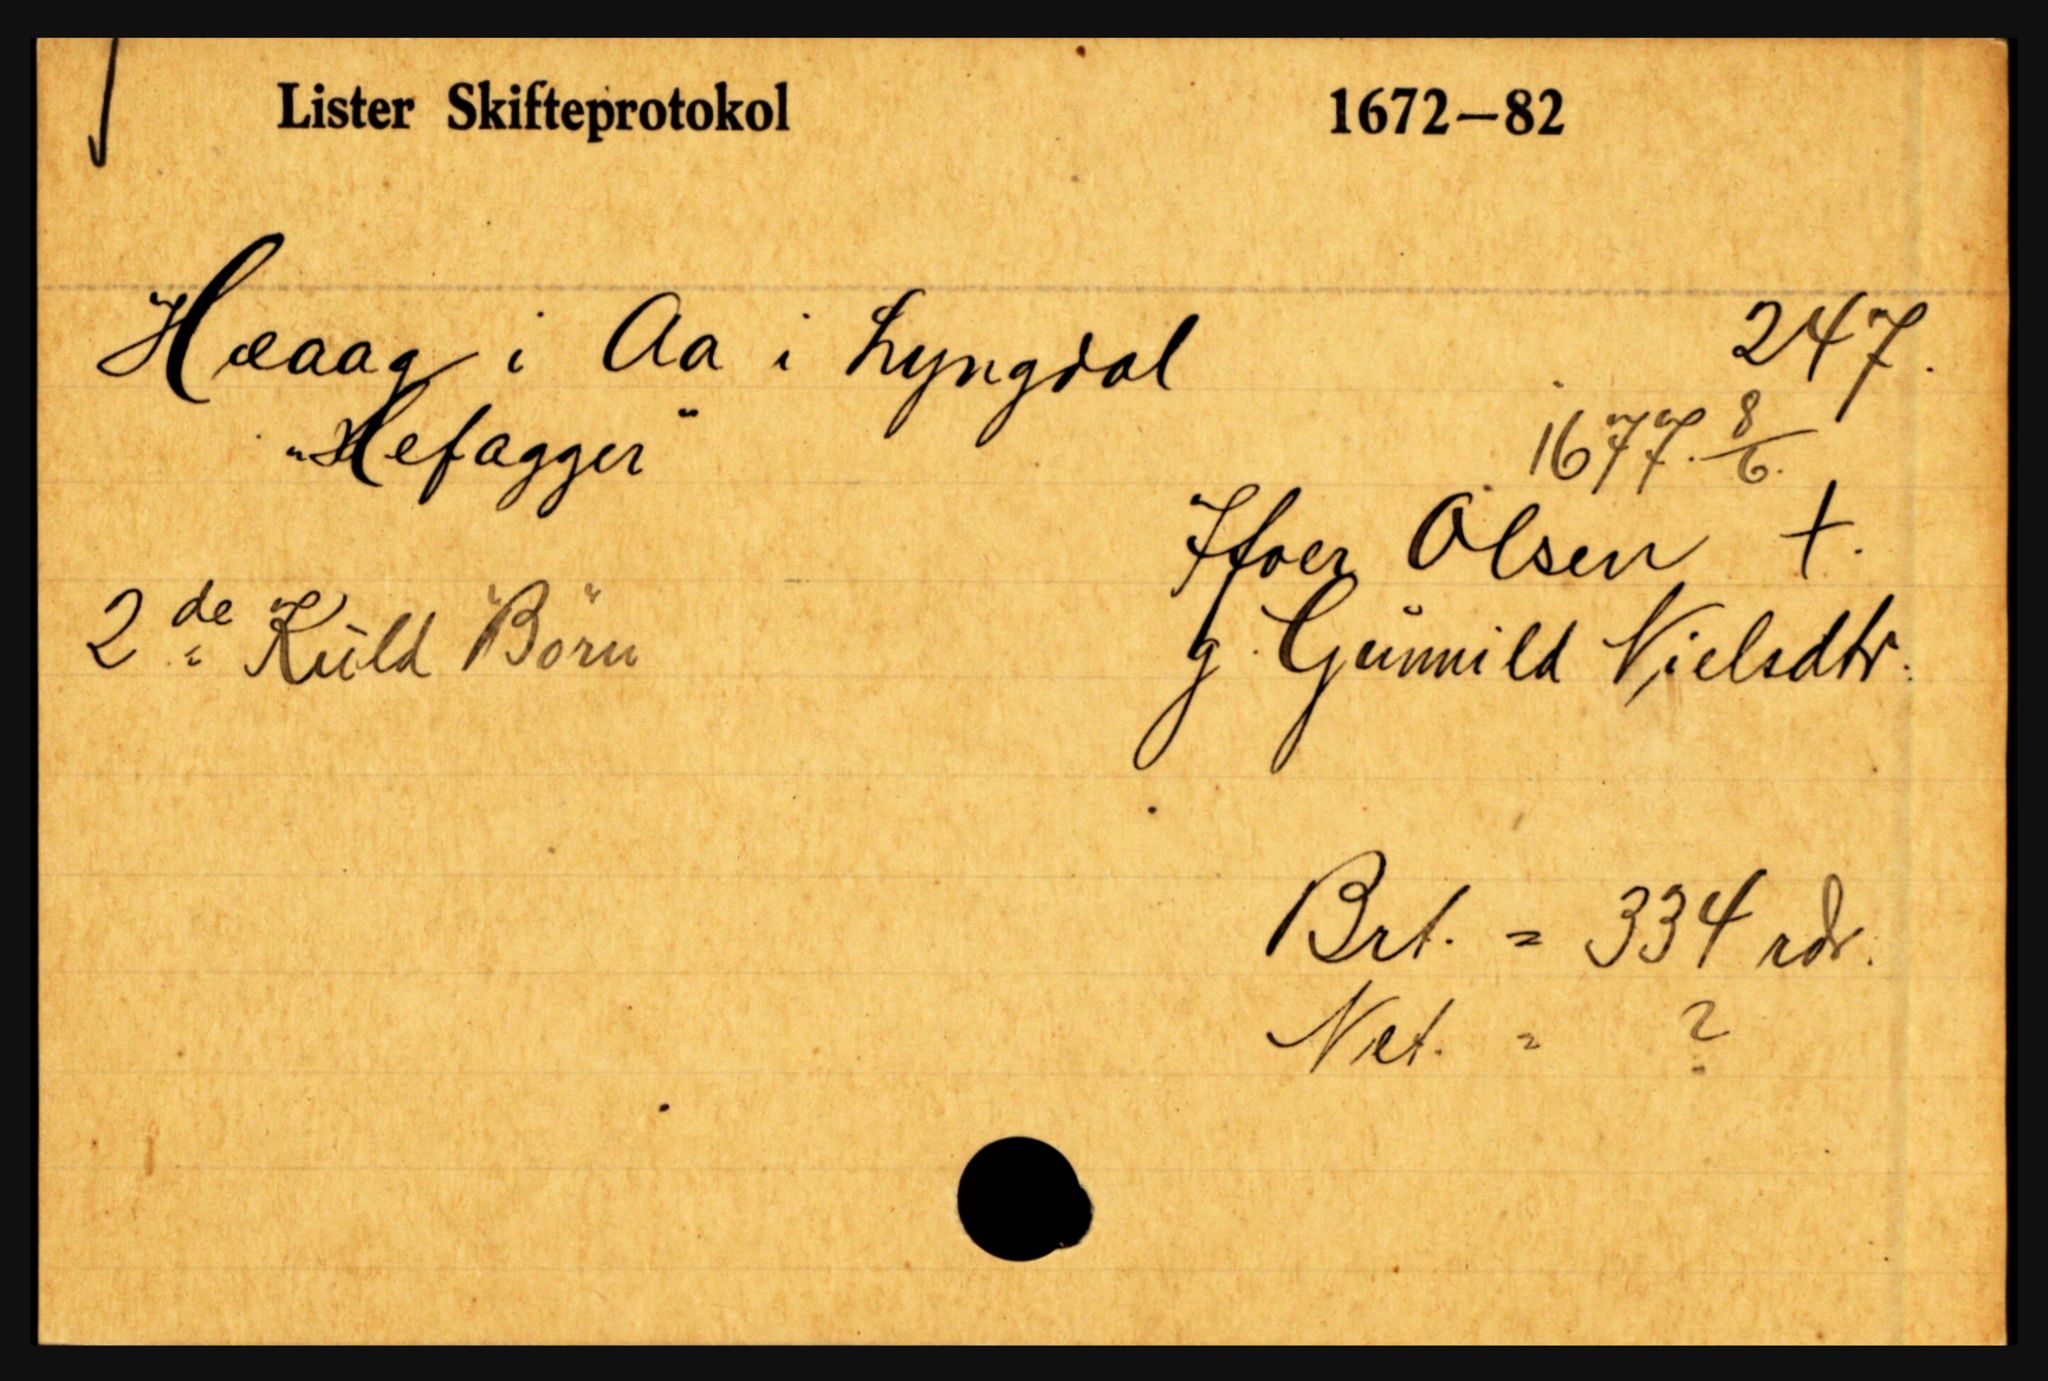 Lister Skifteprotokol 1672—82
Hæaag i Aa i Lyngdal 247.
"Hefagger" 1677. 8/6.
Ifver Olsen †.
2de Kuld Börn g. Gunnild Nielsdtr.
Brt. = 334 rdr.
Net. = ?